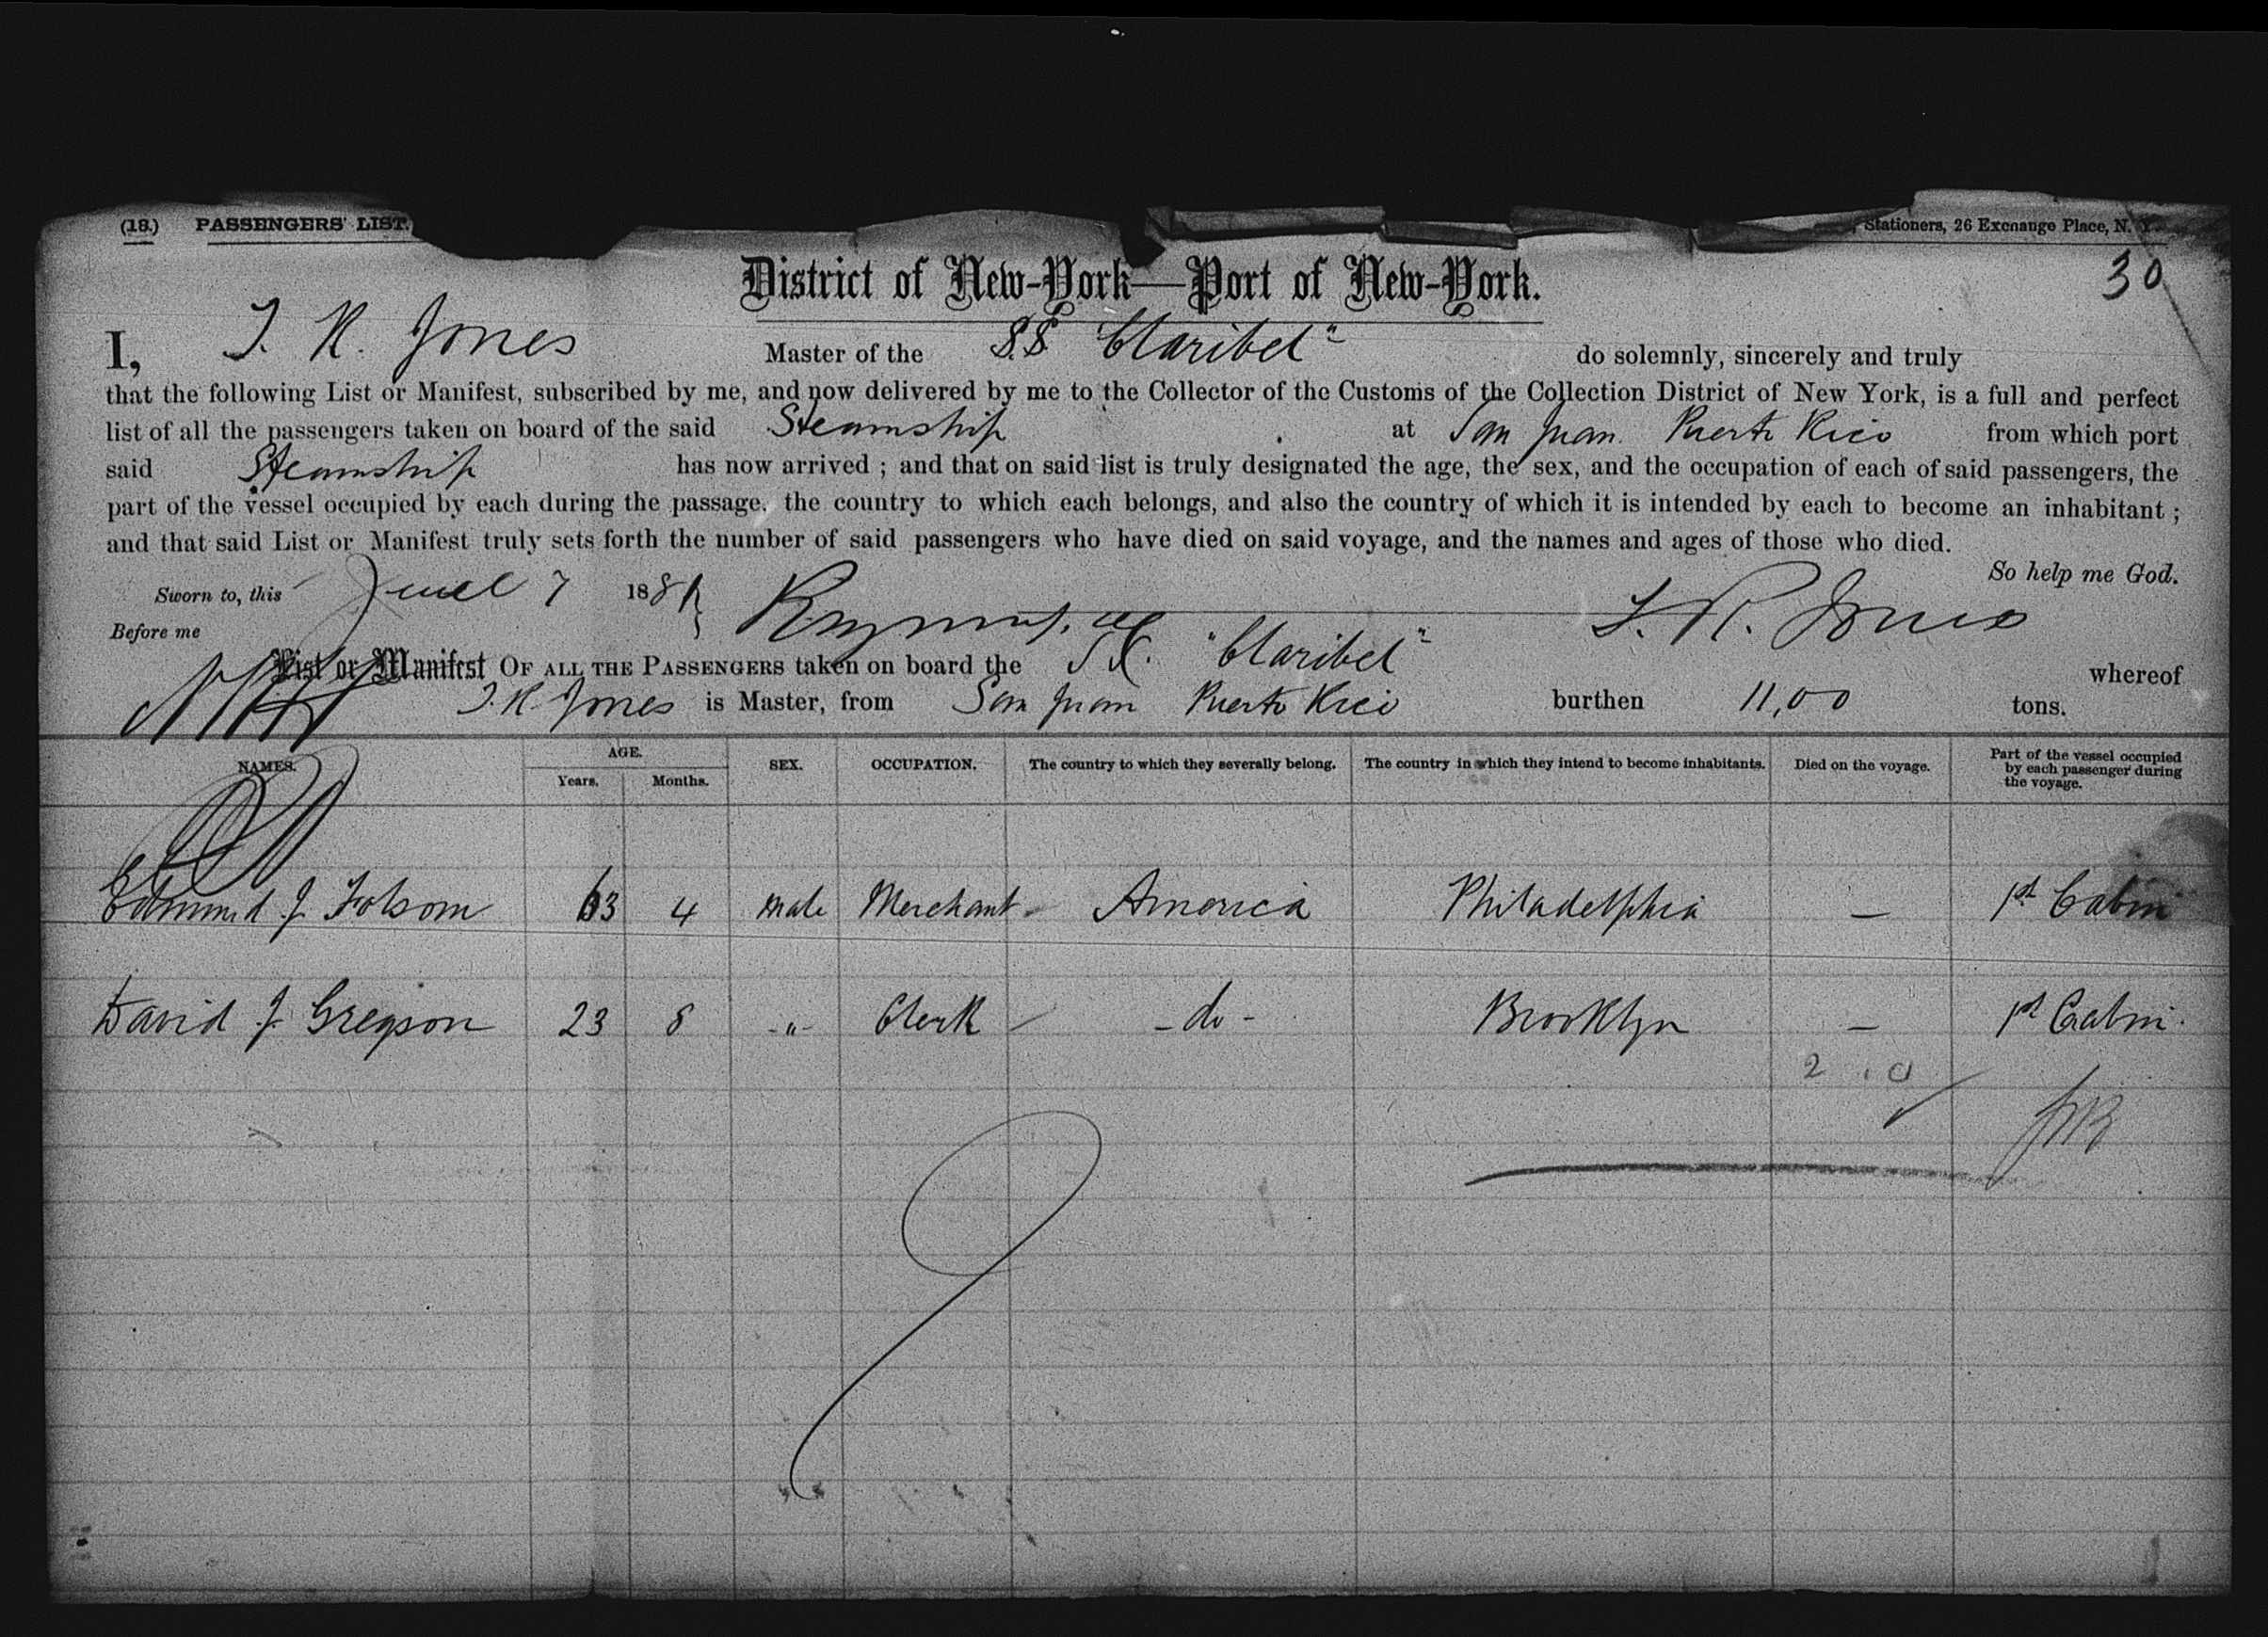 (18.) PASSENGERS' LIST.
Stationers, 26 Exchange Place, N. Y.
30
District of New-York—Port of New-York.
I, T. R. Jones Master of the S.S. "Claribel" do solemnly, sincerely and truly
that the following List or Manifest, subscribed by me, and now delivered by me to the Collector of the Customs of the Collection District of New York, is a full and perfect
list of all the passengers taken on board of the said Steamship at San Juan Puerto Rico from which port
said Steamship has now arrived ; and that on said list is truly designated the age, the sex, and the occupation of each of said passengers, the
part of the vessel occupied by each during the passage, the country to which each belongs, and also the country of which it is intended by each to become an inhabitant ;
and that said List or Manifest truly sets forth the number of said passengers who have died on said voyage, and the names and ages of those who died.
So help me God.
Sworn to, this June 7 188
Before me
T. R. Jones
List or Manifest OF ALL THE PASSENGERS taken on board the "Claribel" whereof
T. R. Jones is Master, from San Juan Puerto Rico burthen 11,00 tons.
NAMES. AGE. Years. Months. SEX. OCCUPATION. The country to which they severally belong. The country in which they intend to become inhabitants. Died on the voyage. Part of the vessel occupied by each passenger during the voyage.
Edmund J. Folsom 63 4 male Merchant America Philadelphia — 1st Cabin
David J. Gregson 23 8 -"- Clerk - do - Brooklyn — 1st Cabin.